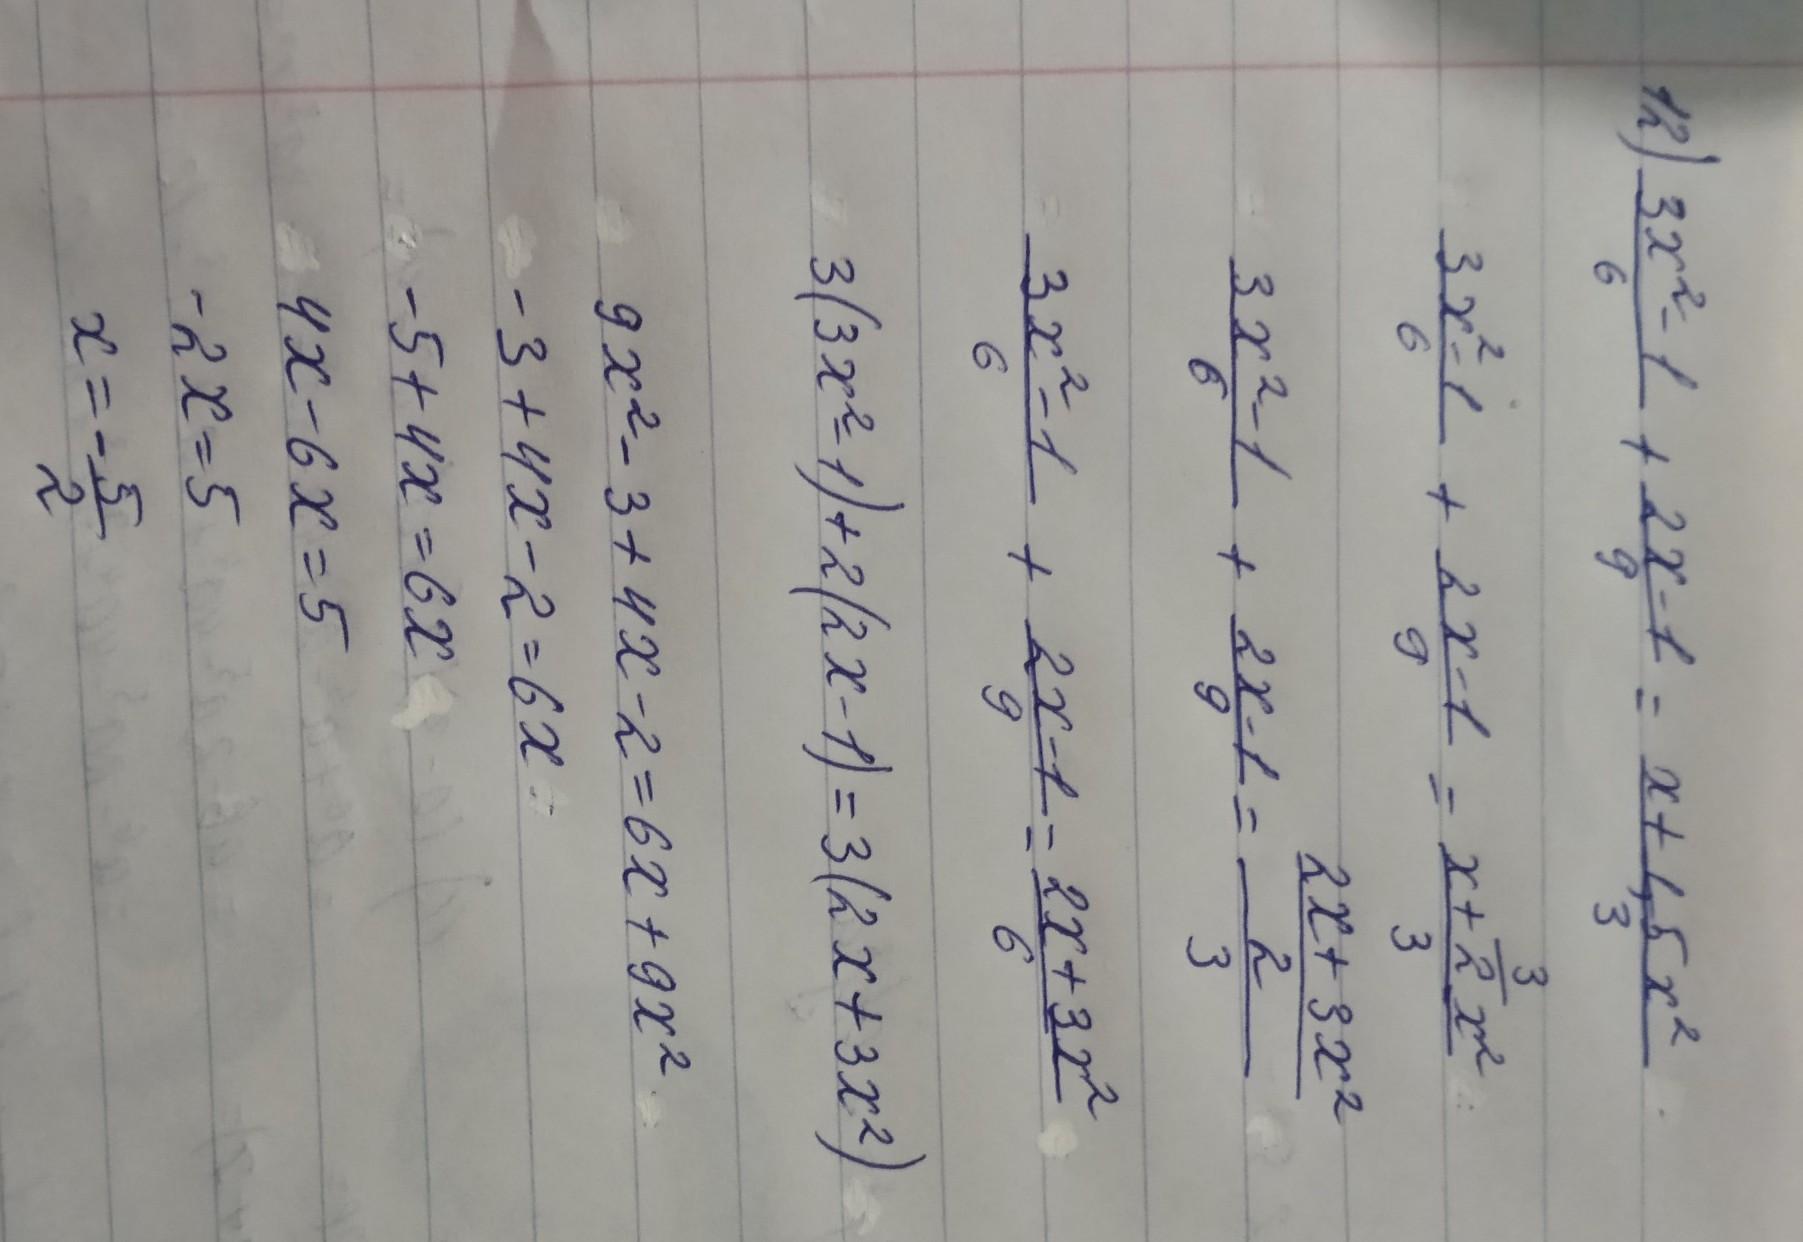 12) (3x²-1)/6 + (2x-1)/9 = (x+1,5x²)/3
(3x²-1)/6 + (2x-1)/9 = (x+3/2x²)/3
(3x²-1)/6 + (2x-1)/9 = ((2x+3x²)/2)/3
(3x²-1)/6 + (2x-1)/9 = (2x+3x²)/6
3(3x²-1)+2(2x-1)=3(2x+3x²)
9x²-3+4x-2=6x+9x²
-3+4x-2=6x
-5+4x=6x
4x-6x=5
-2x=5
x=-5/2